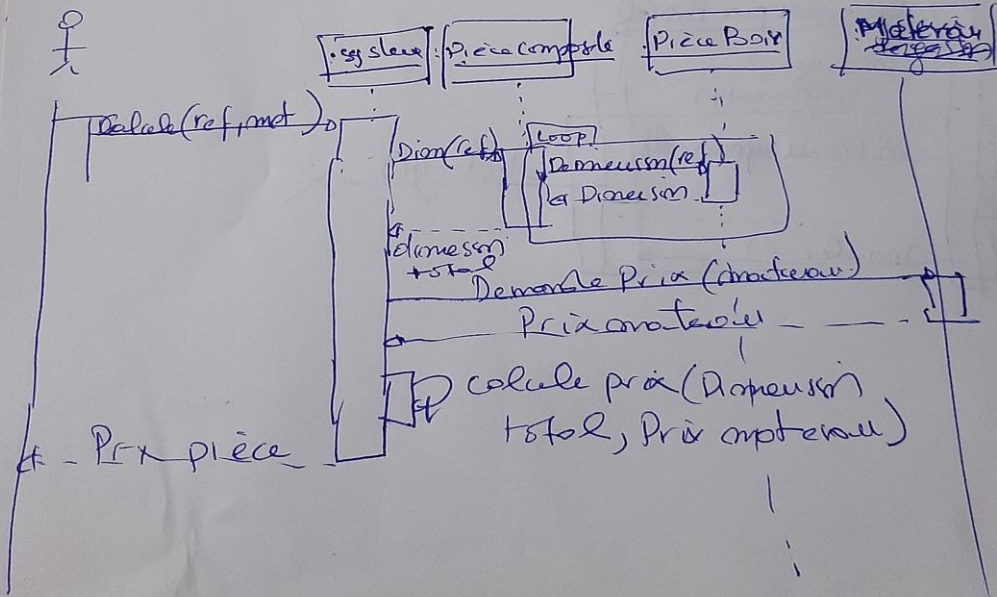 :sysleur
:PièceComposte
:PièceBoix
:Matériau
Calcule(ref,mat)
Dion(ref)
Loop
Demeussn(ref)
Dimeusin
dimessn
total
Demande Prix (materiau)
Prix materieu
calcule prix (Dimeussn
total, Prix mpteriau)
Prx pièce